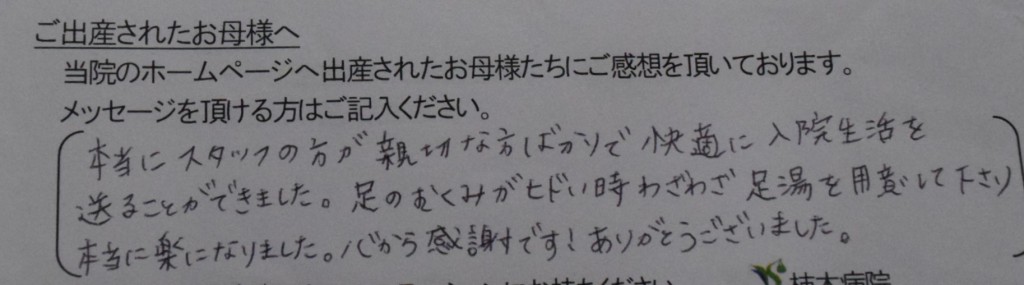 ご出産されたお母様へ
当院のホームページへ出産されたお母様たちにご感想を頂いております。
メッセージを頂ける方はご記入ください。
本当にスタッフの方が親切な方ばかりで快適に入院生活を
送ることができました。足のむくみがヒドい時わざわざ足湯を用意して下さり
本当に楽になりました。心から感謝です!ありがとうございました。
お持ちください
柿木病院